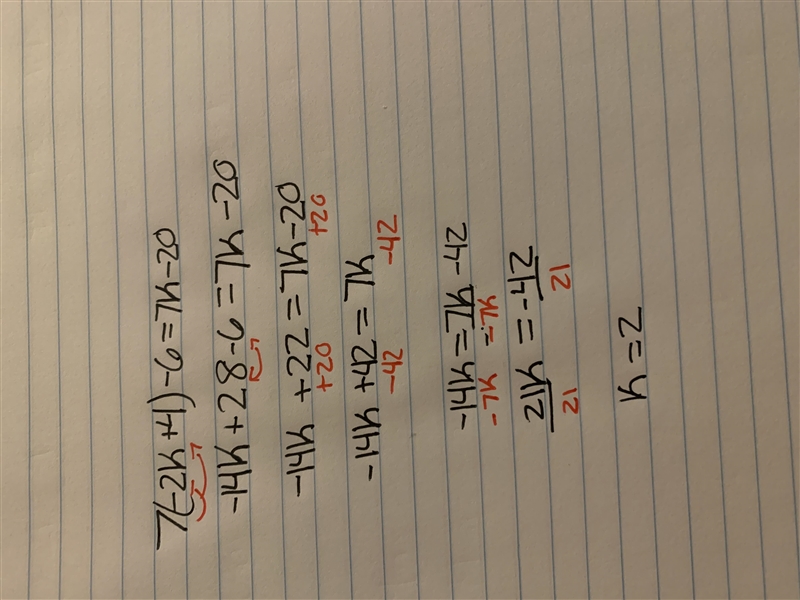 7(-2k+4)-6=7k-20
-14k+28-6=7k-20
-14k +22=7k-20
+20 +20
-14k+42=7k
-42 -42
-14k=7k-42
-7k =-7k
21k = -42
21 21
k=2